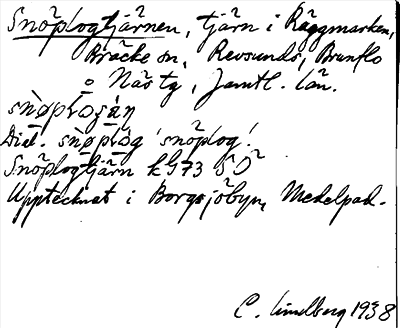 Snöplogtjärnen, tjärn i Räggmarken,
Bräcke sn, Revsunds, Brunflo
o Näs tg, Jämtl. län.
Dial. snøplòg 'snöplog'.
Snöplogtjärn kG73 SO
Upptecknat i Borgsjöbyn, Medelpad.
C. Lindberg 1938